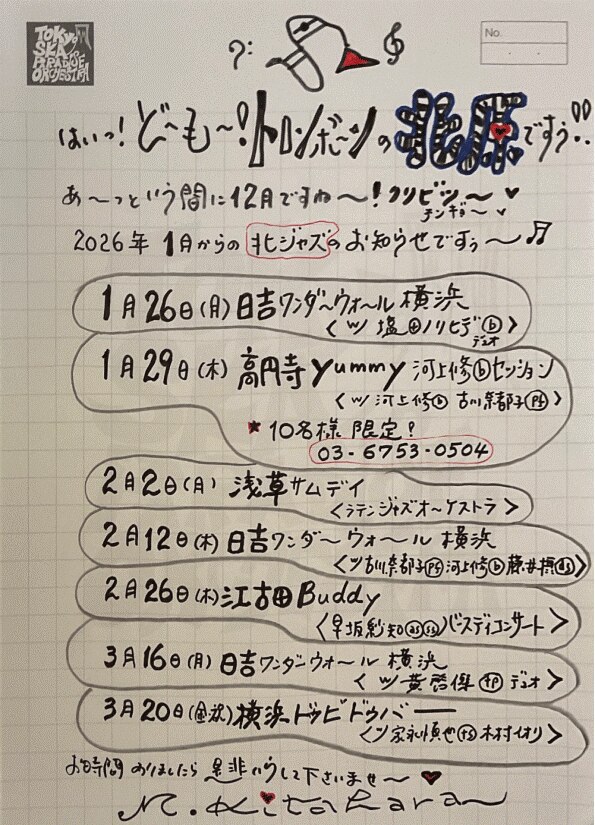 TOKYO SKA PARADISE ORCHESTRA
No.
はいっ! ど〜も〜! トロンボーンの北原ですぅ!!
あ〜っという間に12月ですね〜! クリビツ〜
テンギョ〜
2026年 1月からの 北ジャズのお知らせですぅ〜♫
1月26日(月) 日吉ワンダーウォール 横浜
〈w/ 塩田ノリヒデⓑ デュオ〉
1月29日(木) 高円寺 Yummy 河上修ⓑセッション
〈w/ 河上修ⓑ 古川奈都子(pf)〉
★10名様 限定!
03-6753-0504
2月2日(月) 浅草サムデイ
〈ラテンジャズオーケストラ〉
2月12日(木) 日吉ワンダーウォール 横浜
〈w/ 古川奈都子(pf) 河上修ⓑ 藤井摂(ds)〉
2月26日(木) 江古田 Buddy
〈早坂紗知(as)(ss) バースディコンサート〉
3月16日(月) 日吉ワンダーウォール 横浜
〈w/ 黄啓傑(tp) デュオ〉
3月20日(金祝) 横浜ドゥビドゥバー
〈w/ 家永慎也(ts) 木村イオリ〉
お時間 ありましたら 是非いらして下さいませ〜♥
M.Kitahara